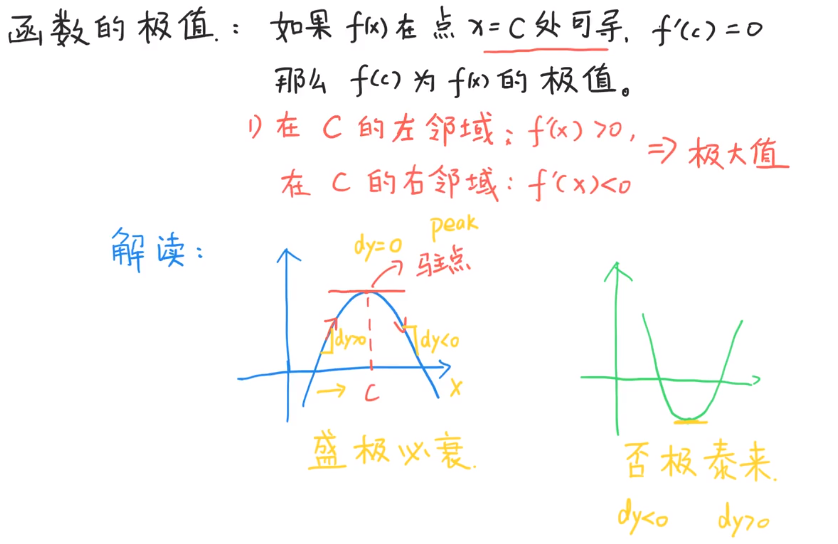 函数的极值：如果 f(x) 在点 x=C 处可导，f'(c)=0
那么 f(c) 为 f(x) 的 极值。
1) 在 C 的左邻域：f'(x)>0，
在 C 的右邻域：f'(x)<0
=> 极大值
解读：
peak
dy=0
驻点
dy>0
dy<0
C
X
盛极必衰.
否极泰来.
dy<0 dy>0